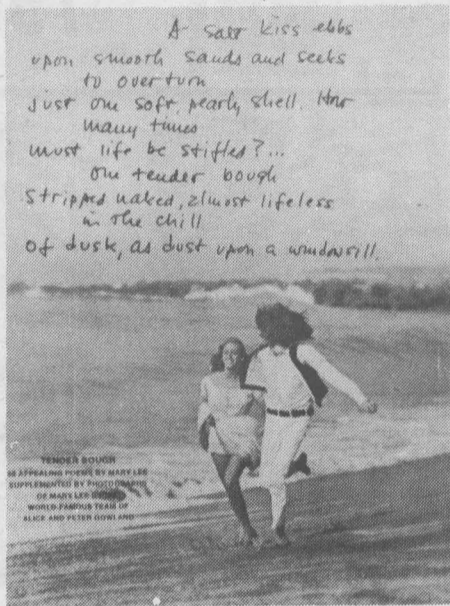 A salt kiss ebbs
upon smooth sands and seeks
to overturn
just one soft, pearly shell. How
many times
must life be stifled?...
one tender bough
stripped naked, almost lifeless
in the chill
of dusk, as dust upon a windowsill.
TENDER BOUGH
APPEALING POEMS BY MARY LEE
SUPPLEMENTED BY PHOTOGRAPHS
OF MARY LEE BY THE
WORLD-FAMOUS TEAM OF
ALICE AND PETER GOWLAND